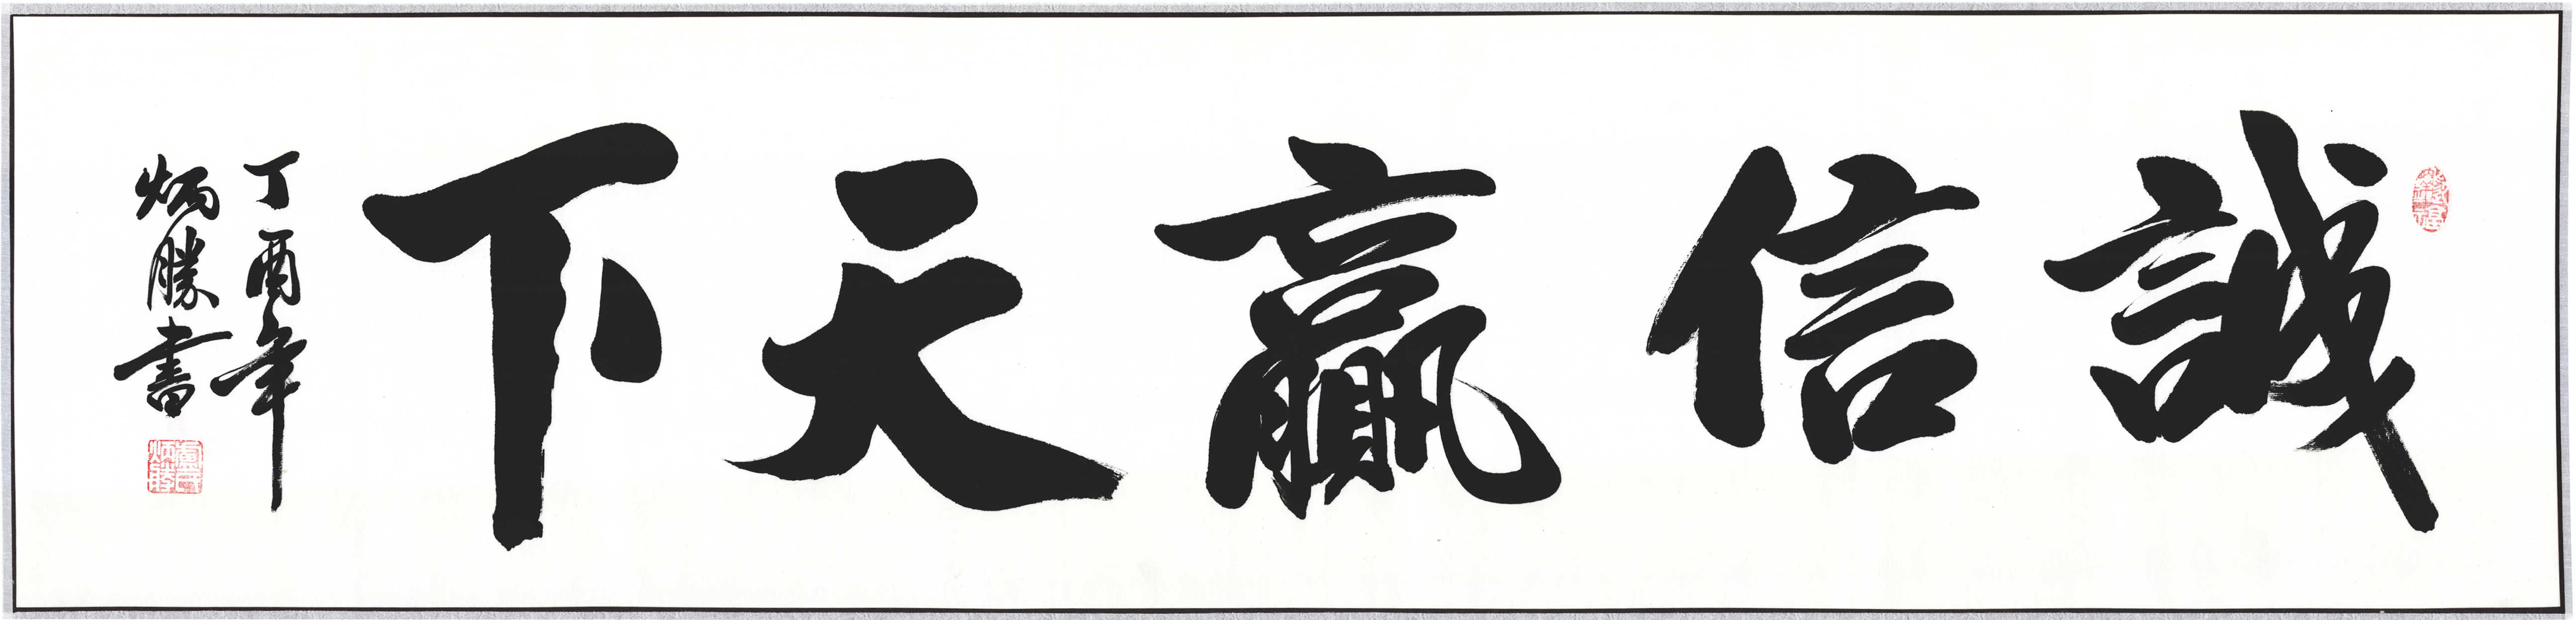 誠信贏天下
丁酉年
炳勝書